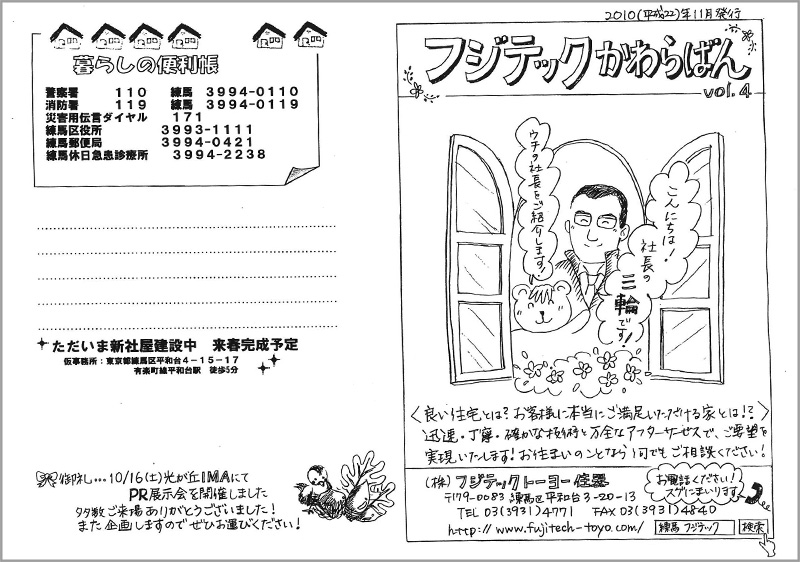 暮らしの便利帳
警察署 110 練馬 3994-0110
消防署 119 練馬 3994-0119
災害用伝言ダイヤル 171
練馬区役所 3993-1111
練馬郵便局 3994-0421
練馬休日急患診療所 3994-2238
ただいま新社屋建設中 来春完成予定
仮事務所：東京都練馬区平和台4-15-17
有楽町線平和台駅 徒歩5分
御礼…10/16(土)光が丘IMAにて
PR展示会を開催しました
多数ご来場ありがとうございました！
また企画しますのでぜひお運びください！
2010(平成22)年11月発行
フジテックかわらばん
vol.4
ウチの社長をご紹介します！
こんにちは！
社長の
三輪です！
〈良い住宅とは？お客様に本当にご満足いただける家とは！？〉
迅速・丁寧・確かな技術と万全なアフターサービスで、ご要望を
実現いたします！お住まいのことなら何でもご相談ください！
(株)フジテックトーヨー住器
〒179-0083 練馬区平和台3-20-13
TEL 03(3931)4771 FAX 03(3931)4840
http://www.fujitech-toyo.com/ 練馬 フジテック 検索
お電話ください！
スグにまいります